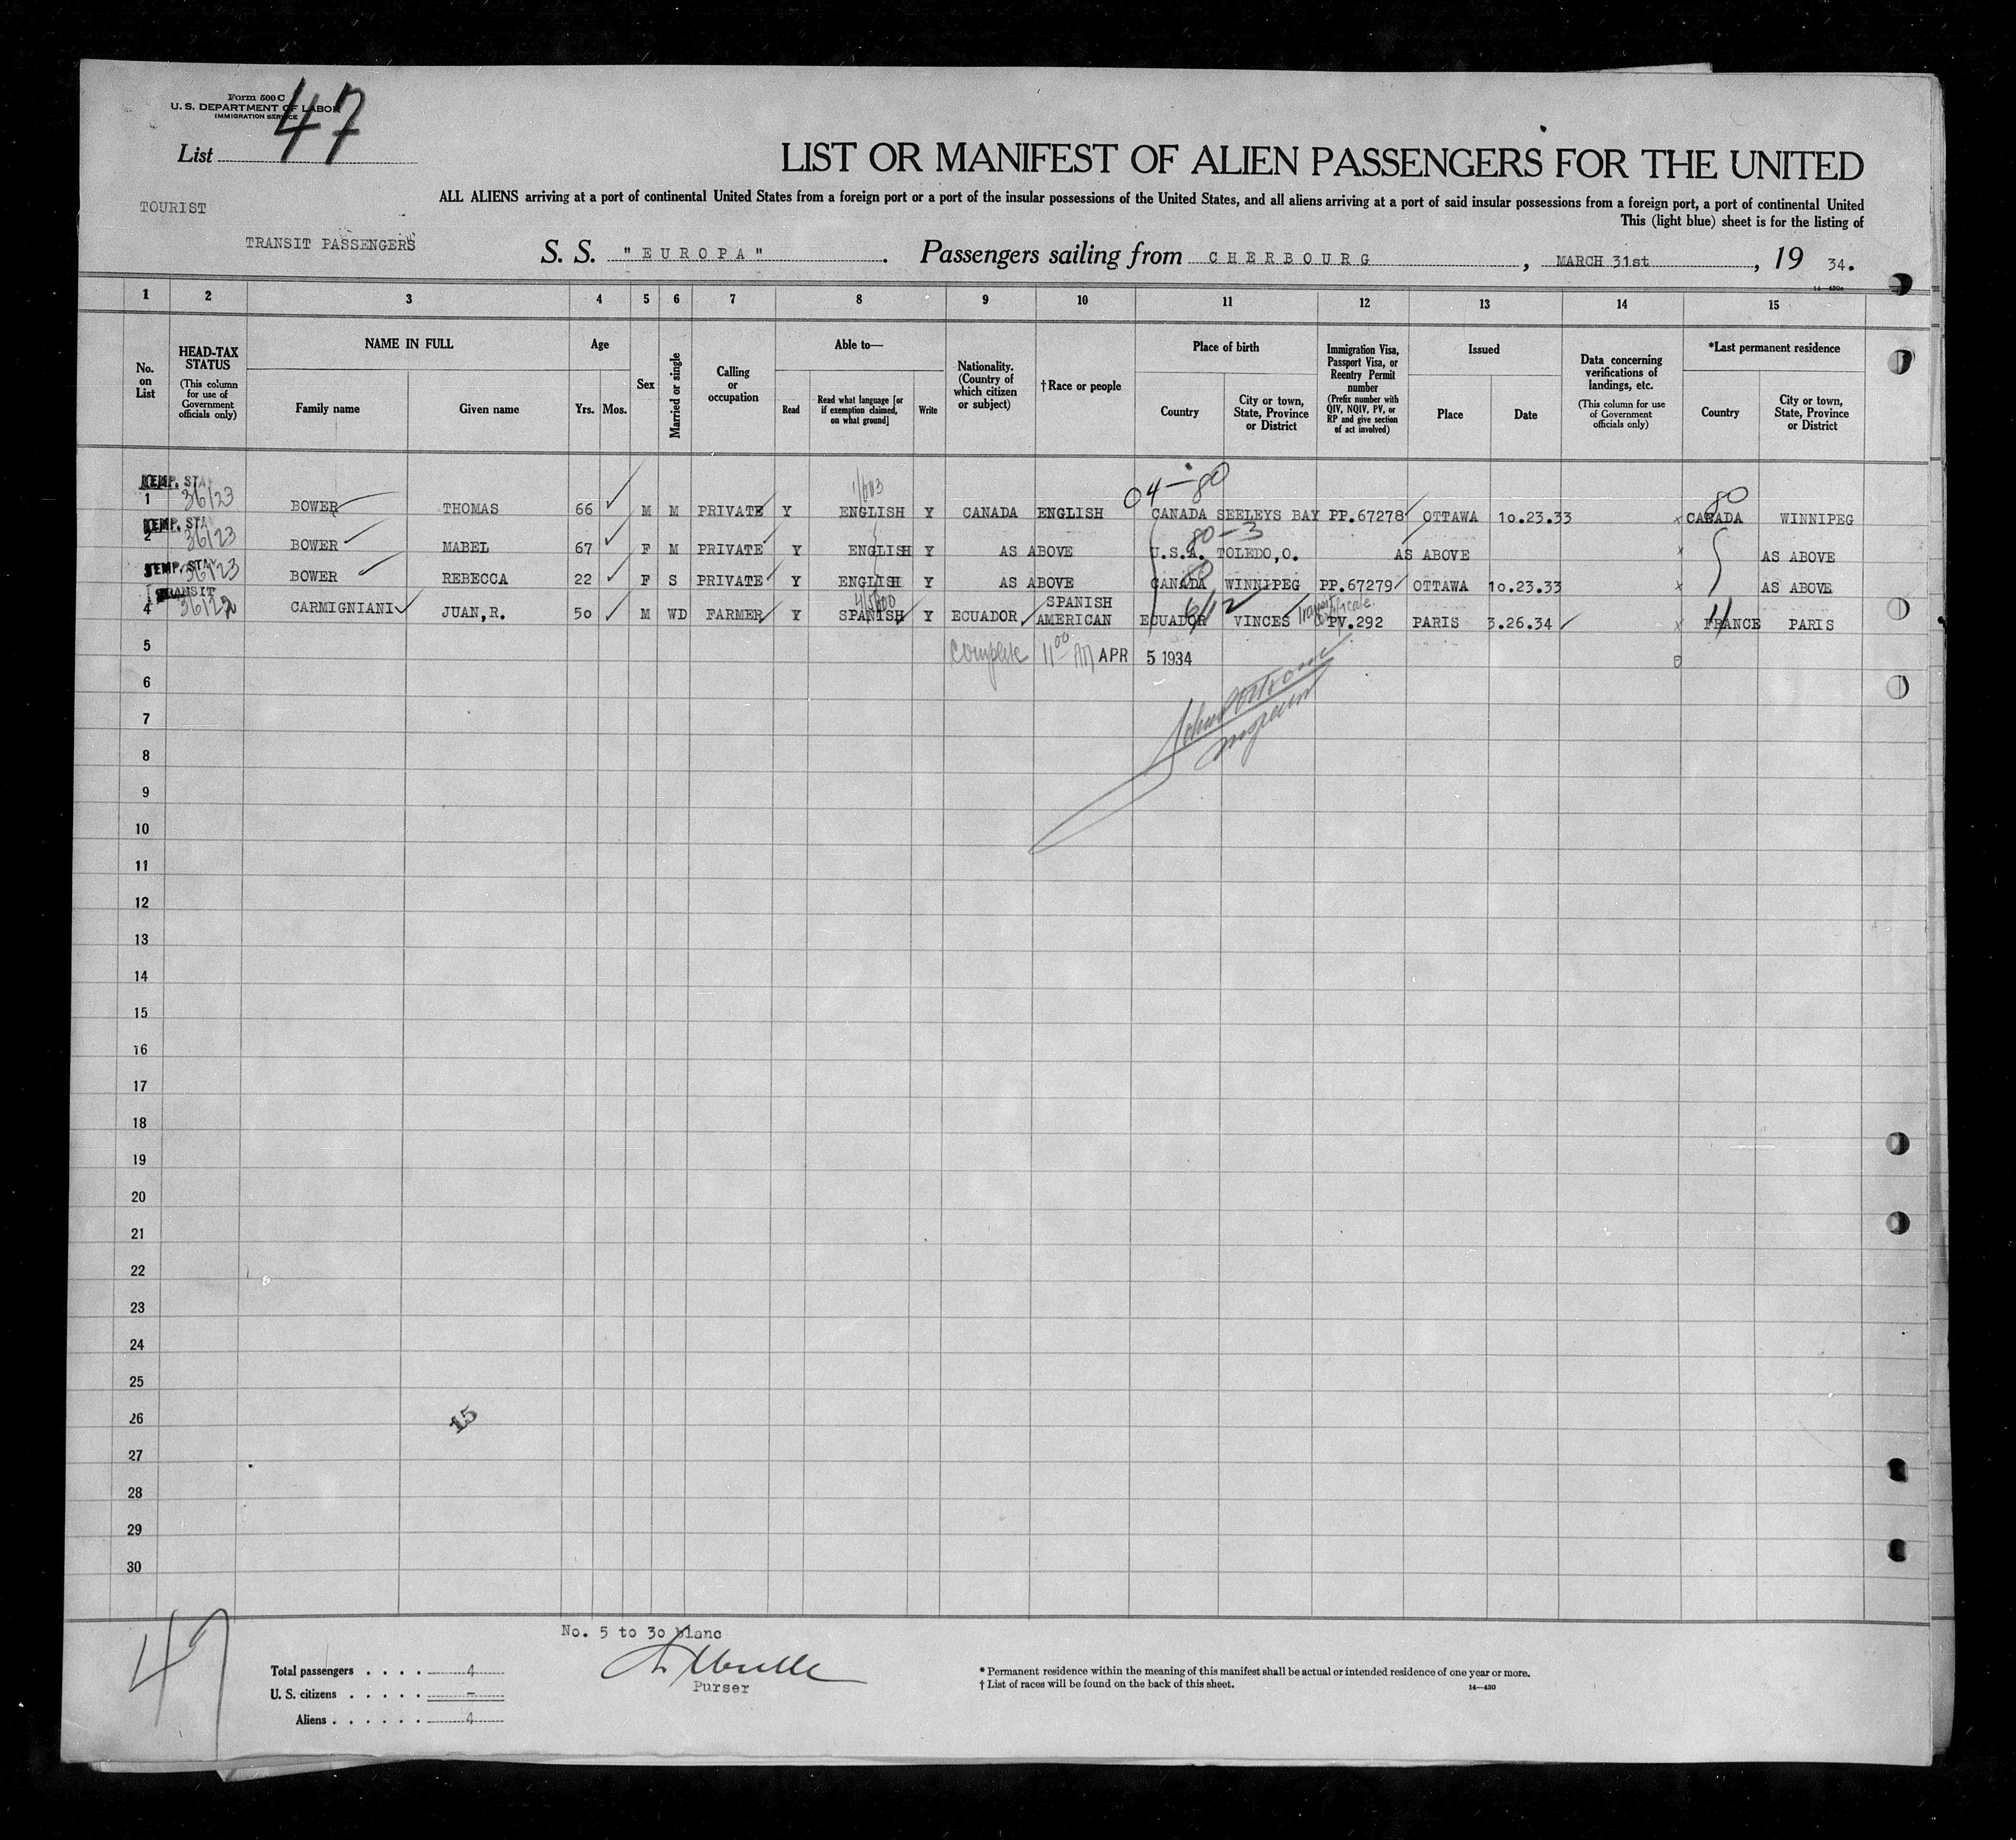 Form 500 C
U. S. DEPARTMENT OF LABOR
IMMIGRATION SERVICE
List 47
LIST OR MANIFEST OF ALIEN PASSENGERS FOR THE UNITED
ALL ALIENS arriving at a port of continental United States from a foreign port or a port of the insular possessions of the United States, and all aliens arriving at a port of said insular possessions from a foreign port, a port of continental United
This (light blue) sheet is for the listing of
TOURIST
TRANSIT PASSENGERS
S. S. "EUROPA". Passengers sailing from CHERBOURG, MARCH 31st, 19 34.
1 2 3 4 5 6 7 8 9 10 11 12 13 14 15
No. on List
HEAD-TAX STATUS
(This column for use of Government officials only)
NAME IN FULL
Family name
Given name
Age
Yrs. Mos.
Sex
Married or single
Calling or occupation
Able to—
Read
Read what language [or if exemption claimed, on what ground]
Write
Nationality. (Country of which citizen or subject)
† Race or people
Place of birth
Country
City or town, State, Province or District
Immigration Visa, Passport Visa, or Reentry Permit number
(Prefix number with QIV, NQIV, PV, or RP and give section of act involved)
Issued
Place
Date
Data concerning verifications of landings, etc.
(This column for use of Government officials only)
*Last permanent residence
Country
City or town, State, Province or District
04-80
80
TEMP. STA
1 36/23 BOWER THOMAS 66 M M PRIVATE Y ENGLISH Y CANADA ENGLISH CANADA SEELEYS BAY PP.67278 OTTAWA 10.23.33 x CANADA WINNIPEG
80-3
TEMP. STA
2 36/23 BOWER MABEL 67 F M PRIVATE Y ENGLISH Y AS ABOVE U.S.A. TOLEDO,O. AS ABOVE x AS ABOVE
80
TEMP. STA
3 36/23 BOWER REBECCA 22 F S PRIVATE Y ENGLISH Y AS ABOVE CANADA WINNIPEG PP.67279 OTTAWA 10.23.33 x AS ABOVE
TRANSIT
Transit Certificate
4 36/22 CARMIGNIANI JUAN,R. 50 M WD FARMER Y SPANISH Y ECUADOR SPANISH AMERICAN ECUADOR VINCES PV.292 PARIS 3.26.34 x FRANCE PARIS
5 Complete 11 00 AM APR 5 1934
6
7
8
9
10
11
12
13
14
15
16
17
18
19
20
21
22
23
24
25
26 15
27
28
29
30
47
No. 5 to 30 blanc
Purser
Total passengers . . . . 4
U. S. citizens . . . . . –
Aliens . . . . . . 4
* Permanent residence within the meaning of this manifest shall be actual or intended residence of one year or more.
† List of races will be found on the back of this sheet.
14—430